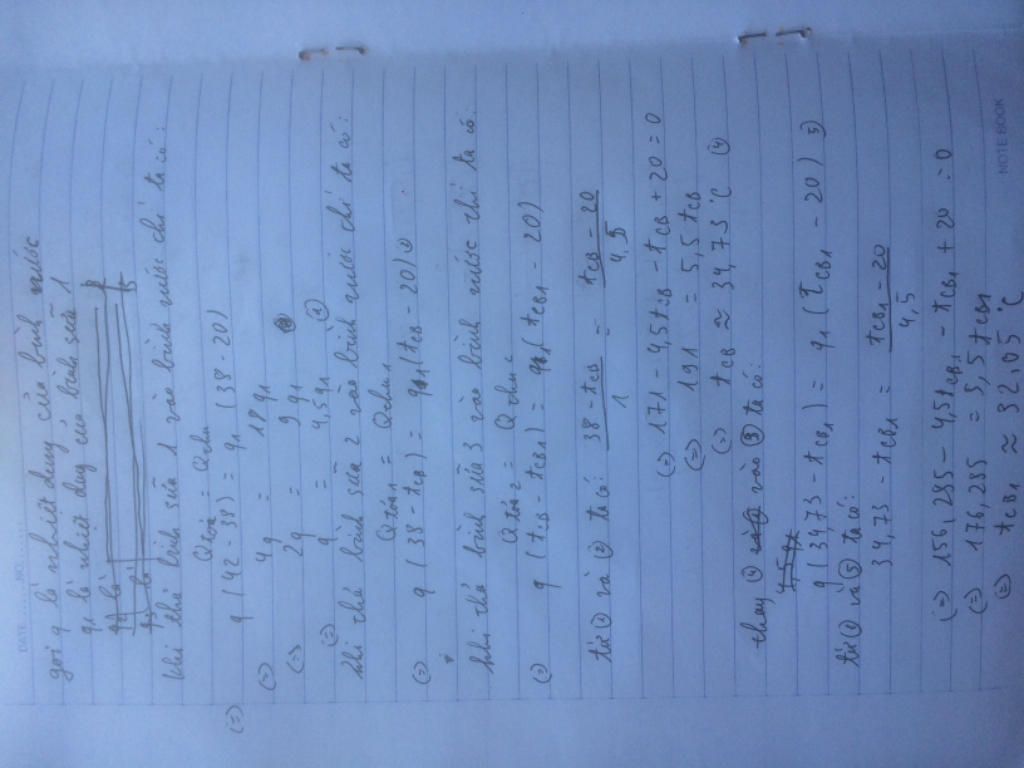 DATE NO.
gọi q là nhiệt dung của bình nước
q1 là nhiệt dung của bình sữa 1
khi thả bình sữa 1 vào bình nước thì ta có:
Qtỏa = Qthu
(=) q (42 - 38) = q1 (38 - 20)
(=) 4q = 18q1
(=) 2q = 9q1
(=) q = 4,5q1 (1)
khi thả bình sữa 2 vào bình nước thì ta có:
Qtỏa1 = Qthu1
(=) q (38 - tcb) = q1 (tcb - 20) (2)
khi thả bình sữa 3 vào bình nước thì ta có
Qtỏa2 = Qthu2
(=) q (tcb - tcb1) = q1 (tcb1 - 20)
từ (1) và (2) ta có: (38 - tcb)/1 = (tcb - 20)/4,5
(=) 171 - 4,5tcb - tcb + 20 = 0
(=) 191 = 5,5tcb
(=) tcb ≈ 34,73°C (4)
thay (4) vào (3) ta có:
q (34,73 - tcb1) = q1 (tcb1 - 20) (5)
từ (1) và (5) ta có:
34,73 - tcb1 = (tcb1 - 20)/4,5
(=) 156,285 - 4,5tcb1 - tcb1 + 20 = 0
(=) 176,285 = 5,5tcb1
(=) tcb1 ≈ 32,05°C
NOTE BOOK